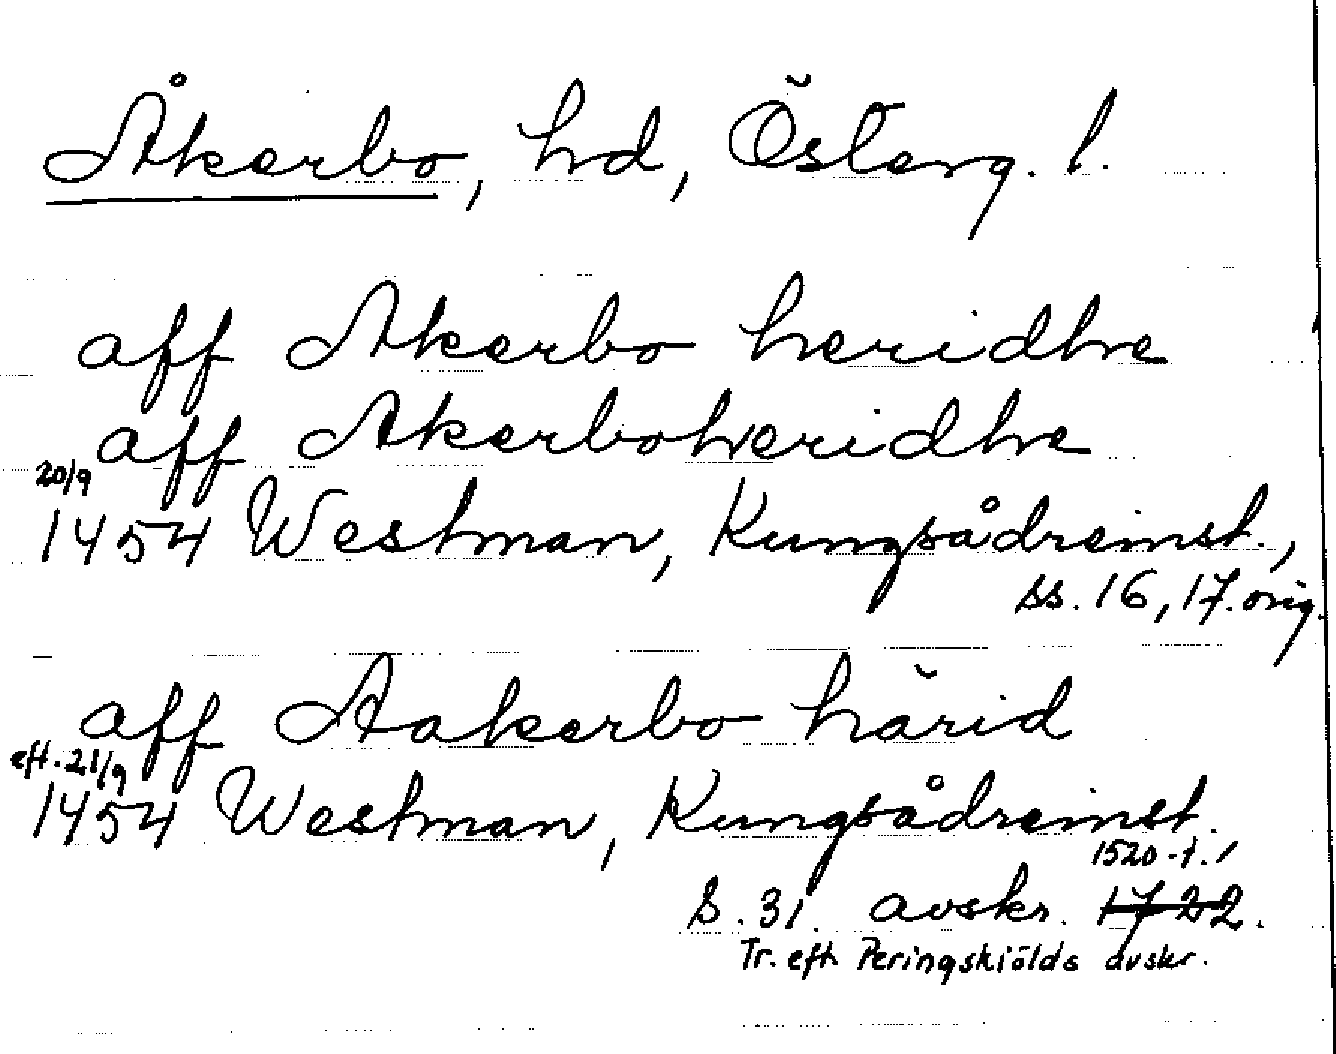 Åkerbo, hd, Österg. l.
aff Akerbo heridhe
aff Akerboheridhe
20/9
1454 Westman, Kungsådreinst.,
ss. 16, 17. orig.
aff Aakerbo härid
eft. 21/9
1454 Westman, Kungsådreinst.
1520-t.
S. 31. avskr. 1722.
Tr. eft. Peringskiölds avskr.